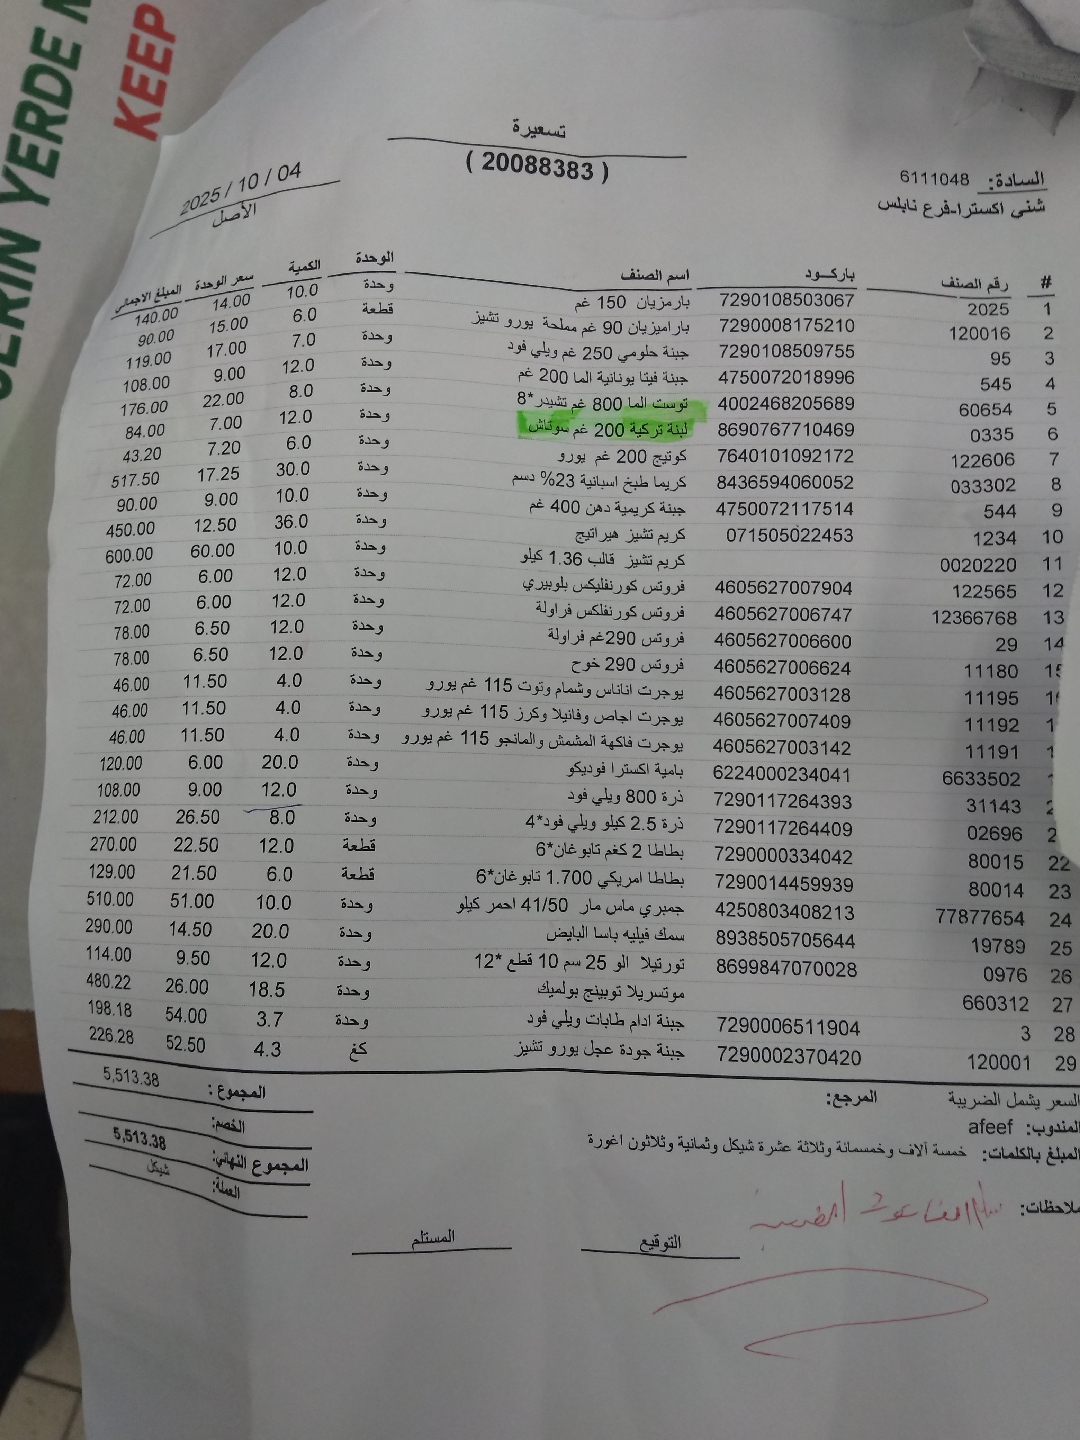 ERIN YERDE
KEEP
تسعيرة
( 20088383 )
2025 / 10 / 04
الأصل
السادة: 6111048
شني اكسترا-فرع نابلس
# رقم الصنف باركود اسم الصنف الوحدة الكمية سعر الوحدة المبلغ الاجمالي
1 2025 7290108503067 بارمزيان 150 غم وحدة 10.0 14.00 140.00
2 120016 7290008175210 باراميزيان 90 غم مملحة يورو تشيز قطعة 6.0 15.00 90.00
3 95 7290108509755 جبنة حلومي 250 غم ويلي فود وحدة 7.0 17.00 119.00
4 545 4750072018996 جبنة فيتا يونانية الما 200 غم وحدة 12.0 9.00 108.00
5 60654 4002468205689 توست الما 800 غم تشيدر*8 وحدة 8.0 22.00 176.00
6 0335 8690767710469 لبنة تركية 200 غم سوتاش وحدة 12.0 7.00 84.00
7 122606 7640101092172 كوتيج 200 غم يورو وحدة 6.0 7.20 43.20
8 033302 8436594060052 كريما طبخ اسبانية 23% دسم وحدة 30.0 17.25 517.50
9 544 4750072117514 جبنة كريمية دهن 400 غم وحدة 10.0 9.00 90.00
10 1234 071505022453 كريم تشيز هيراتيج وحدة 36.0 12.50 450.00
11 0020220 كريم تشيز قالب 1.36 كيلو وحدة 10.0 60.00 600.00
12 122565 4605627007904 فروتس كورنفليكس بلوبيري وحدة 12.0 6.00 72.00
13 12366768 4605627006747 فروتس كورنفلكس فراولة وحدة 12.0 6.00 72.00
14 29 4605627006600 فروتس 290غم فراولة وحدة 12.0 6.50 78.00
15 11180 4605627006624 فروتس 290 خوخ وحدة 12.0 6.50 78.00
1 11195 4605627003128 يوجرت اناناس وشمام وتوت 115 غم يورو وحدة 4.0 11.50 46.00
1 11192 4605627007409 يوجرت اجاص وفانيلا وكرز 115 غم يورو وحدة 4.0 11.50 46.00
11191 4605627003142 يوجرت فاكهة المشمش والمانجو 115 غم يورو وحدة 4.0 11.50 46.00
6633502 6224000234041 بامية اكسترا فوديكو وحدة 20.0 6.00 120.00
2 31143 7290117264393 ذرة 800 ويلي فود وحدة 12.0 9.00 108.00
2 02696 7290117264409 ذرة 2.5 كيلو ويلي فود*4 وحدة 8.0 26.50 212.00
22 80015 7290000334042 بطاطا 2 كغم تابوغان*6 قطعة 12.0 22.50 270.00
23 80014 7290014459939 بطاطا امريكي 1.700 تابوغان*6 قطعة 6.0 21.50 129.00
24 77877654 4250803408213 جمبري ماس مار 41/50 احمر كيلو وحدة 10.0 51.00 510.00
25 19789 8938505705644 سمك فيليه باسا البايض وحدة 20.0 14.50 290.00
26 0976 8699847070028 تورتيلا الو 25 سم 10 قطع *12 وحدة 12.0 9.50 114.00
27 660312 موتسريلا توبينج بولميك وحدة 18.5 26.00 480.22
28 3 7290006511904 جبنة ادام طابات ويلي فود وحدة 3.7 54.00 198.18
29 120001 7290002370420 جبنة جودة عجل يورو تشيز كغ 4.3 52.50 226.28
السعر يشمل الضريبة المرجع: المجموع : 5,513.38
المندوب: afeef الخصم:
المبلغ بالكلمات: خمسة آلاف وخمسمائة وثلاثة عشرة شيكل وثمانية وثلاثون اغورة المجموع النهائي: 5,513.38
العملة: شيكل
ملاحظات:
التوقيع المستلم